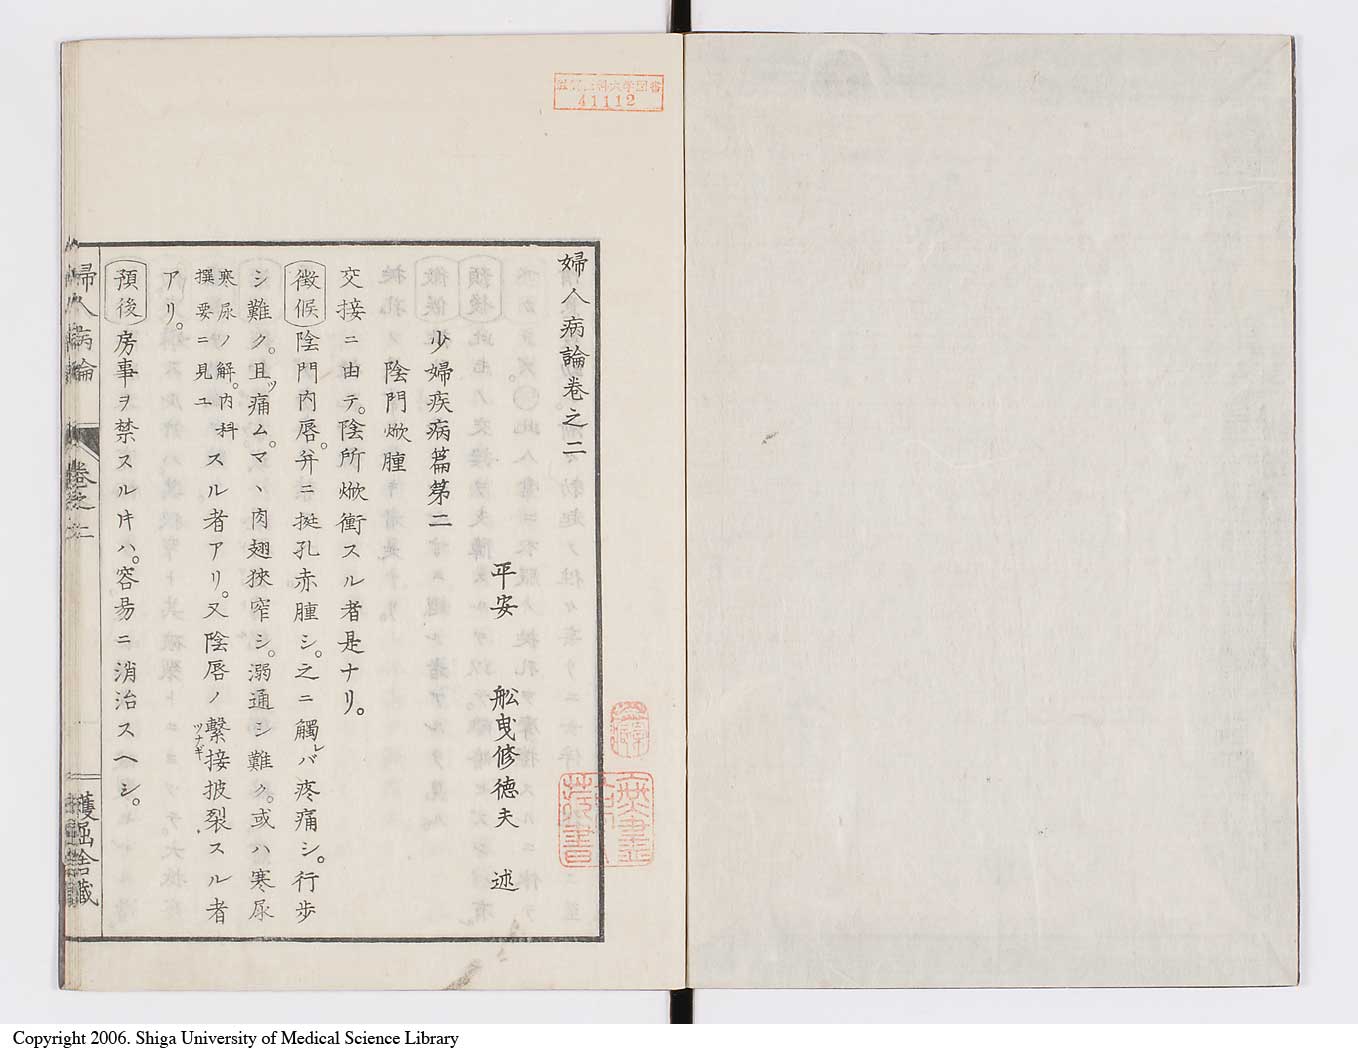 41112
婦人病論巻之二
平安 舩曳修德夫 述
少婦疾病篇第二
陰門焮腫
交接ニ由テ。陰所焮衝スル者是ナリ。
徴候 陰門內唇。并ニ挺孔赤腫シ。之ニ觸レバ疼痛シ。行步
シ難ク。且ツ痛ム。マヽ肉翅狹窄シ。溺通シ難ク。或ハ寒尿
寒尿ノ解。内科
撰要ニ見ユ
スル者アリ。又陰唇ノ繫接披裂スル者
ツナギ
アリ。
預後 房事ヲ禁スル片ハ。容易ニ消治スヘシ。
婦人病論 巻之二
Copyright 2006. Shiga University of Medical Science Library